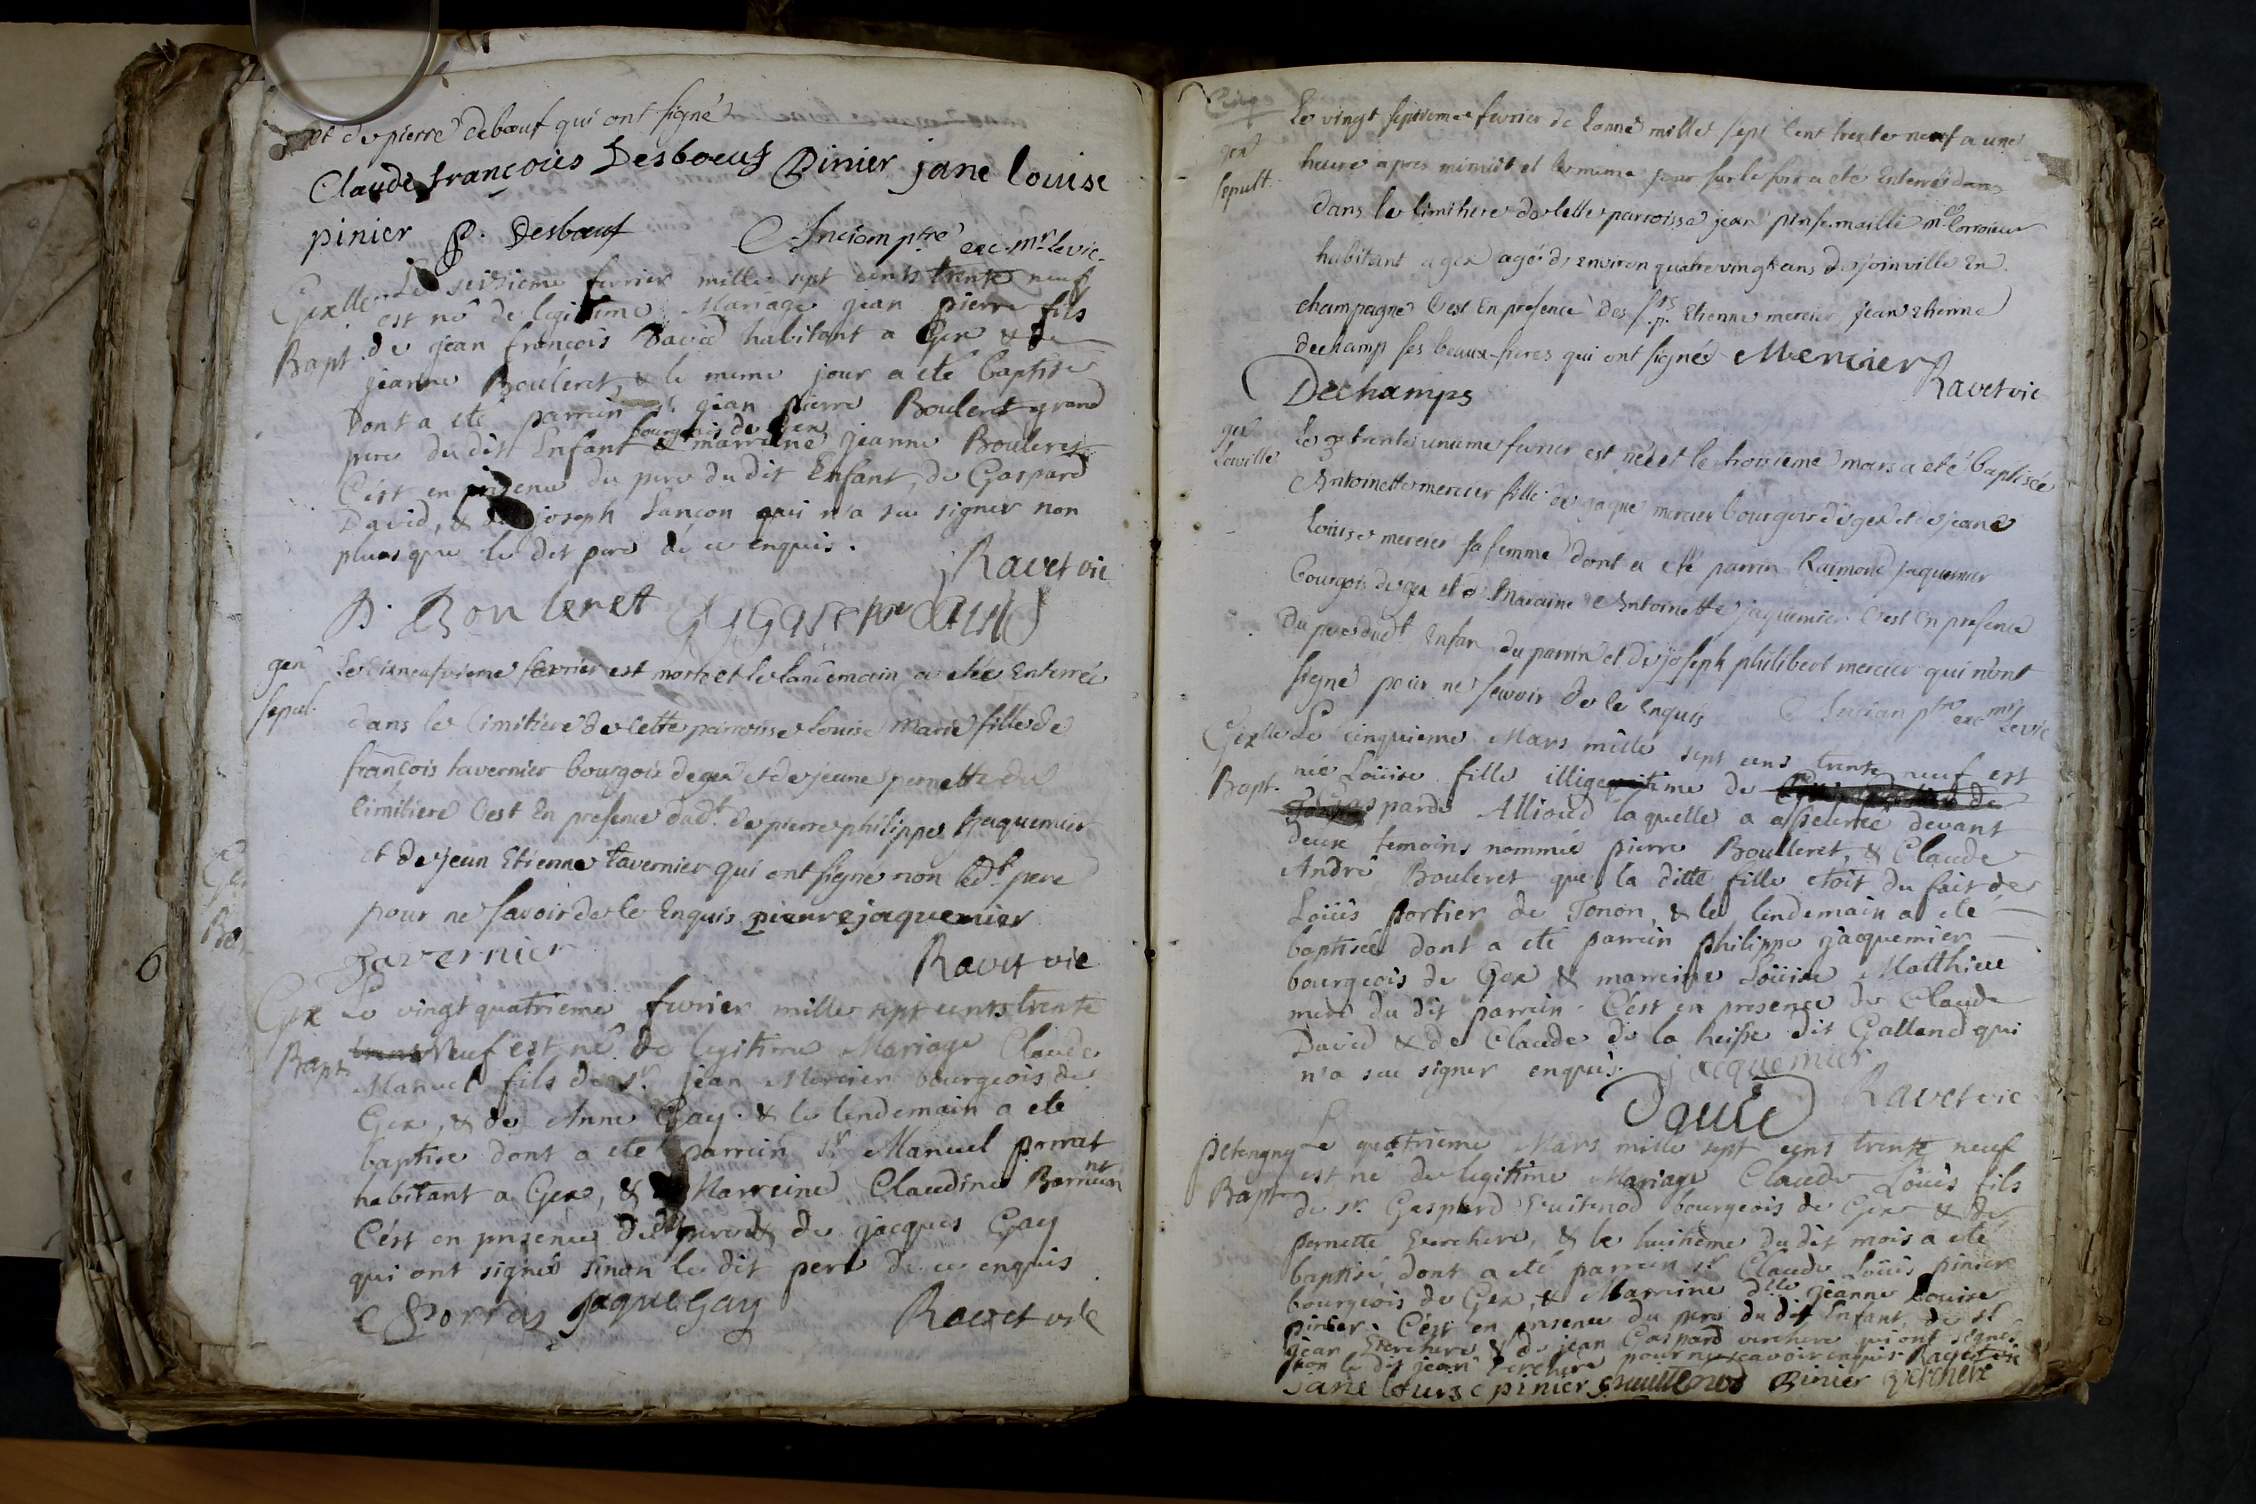 et de pierre deboeuf qui ont signé
Claude françois Desboeuf Pinier jane louise
pinier P. Desboeuf Anciam ptre exc. mr le vic.
Gex Le seizieme fevrier mille sept cents trente neuf
est né de legitime Mariage jean pierre fils
Bapt. de jean françois David habitant a Gex & de
jeanne Bouleret, & le meme jour a eté baptisé
Dont a eté parrein sr. jean pierre Bouleret grand
bourgeois de Gex
pere du dit Enfant & marreine jeanne Bouleret
C'est en presence du pere du dit Enfant, de Gaspard
David, & de joseph Lançon qui n'a su signer non
plus que le dit pere de ce enquis.
Ravet vic
P. Bouleret
gex Le disneufvieme fevrier est morte et le landemain a etée Enterrée
sepul. dans le Cimitiere de Cette parroisse louise Marie fille de
françois tavernier bourgois de gex et de jeane pernette du
Cimitiere C'est En presence dudt. de pierre philippe Jaquemier
et de jean Etienne tavernier qui ont signe non ledt. pere
pour ne savoir de le Enquis pierre jaquemier
Tavernier Ravet vic
Gex Le vingt quatrieme fevrier mille sept cents trente
Bapt. neuf est né de legitime Mariage Claude
Manuel fils de sr. jean Mercier bourgeois de
Gex, & de Anne Gay. & le lendemain a eté
baptisé dont a eté parrein sr. Manuel porrat
habitant a Gex, & Marreine Claudine
C'est en presence dudt pere & de jacques Gay
qui ont signés sinon le dit pere de ce enquis
Porras jaque Gay Ravet vic
Le vingt septieme fevrier de Lanné mille sept Cent trente neuf a une
gex
sepult. heure apres minuit et le meme jour sur le soir a eté Enterré dans
dans le Cimitiere de Cette parroisse jean
habitant a gex agé de environ quatre vingt ans de joinville En
champagne C'est En presence Des Etienne mercier jean Etienne
dechamp ses beaux-freres qui ont signés Mercier
Dechamps Ravet vic
gex Le trente unieme fevrier est née et le troisieme mars a eté baptisée
Antoinette mercier fille de jaque mercier bourgois de gex et de jeane
Louise mercier sa femme dont a eté parrin Raimond jaquemier
bourgois de gex et Maraine Antoinette jaquemier C'est En presence
Du pere dudt Enfan du parrin et de joseph philibert mercier qui n'ont
signé pour ne scavoir de le Enquis Anciam ptre exc mr le vic
Gex Le cinquieme Mars mille sept cens trente neuf est
Bapt. née Loüise fille illigegitime de
parde Allioud laquelle a asseurée devant
deux temoins nommé pierre Boulleret, & Claude
André Bouleret que la ditte fille etoit du fait de
Loüis portier de Tonon, & le lendemain a eté
baptisée dont a eté parrein philippe jacquemier
bourgeois de Gex & marreine Loüise Matthieu
mere du dit parrein. C'est en presence de Claude
David & de Claude de la heisse dit Galland qui
n'a sue signer enquis. jacquemier
Davit Ravet vic
petengny Le quatrieme Mars mille sept cens trente neuf
Bapt. est né de legitime Mariage Claude Loüis fils
de sr. Gaspard Vuitenod bourgeois de Gex & de
pernette Verchere, & le huitieme du dit mois a eté
baptisé dont a eté parrein sr. Claude Loüis pinier
bourgeois de Gex, & Marreine dlle jeanne Louise
pinier. C'est en presence du pere du dit Enfant, de sr
jean Verchere & de jean Gaspard verchere qui ont signés
non le dit jean Verchere pour ne scavoir enquis Ravet vic
jane louise pinier Vuittenod Pinier verchere